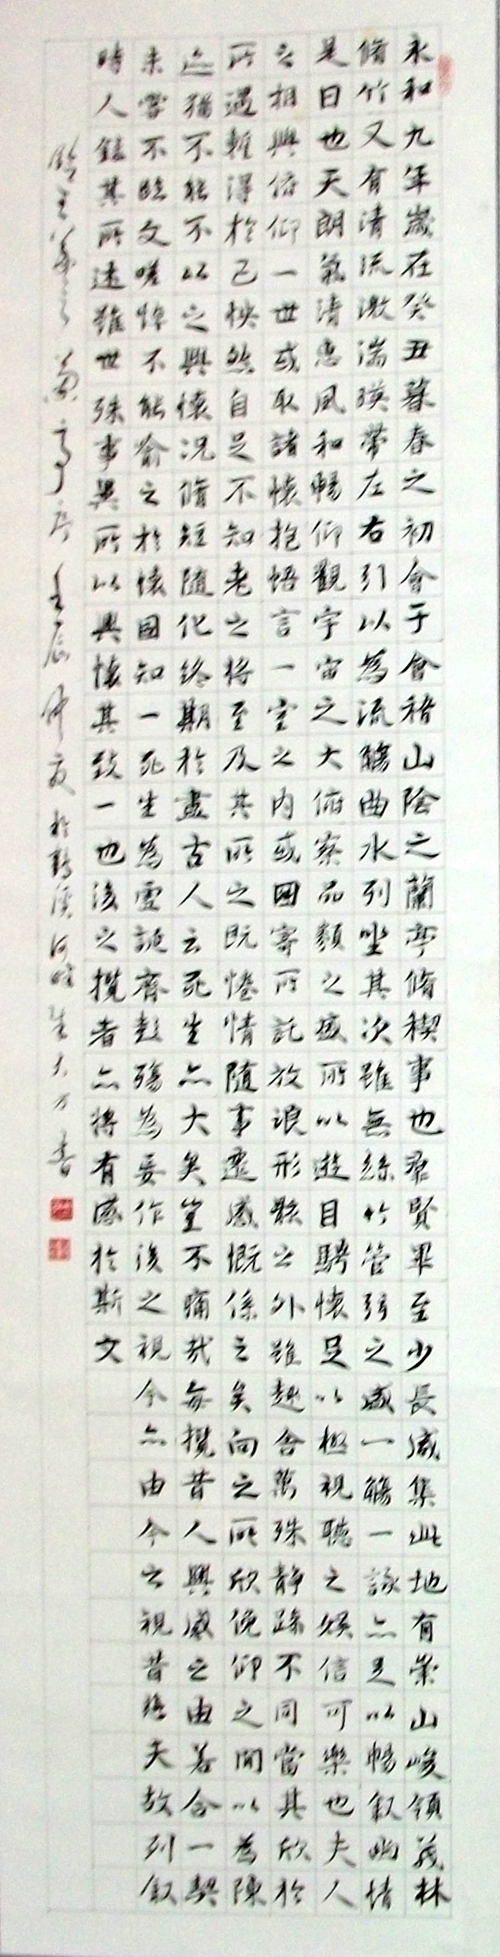 永和九年歲在癸丑暮春之初會于會稽山陰之蘭亭脩稧事也群賢畢至少長咸集此地有崇山峻領茂林
脩竹又有清流激湍暎帶左右引以為流觴曲水列坐其次雖無絲竹管弦之盛一觴一詠亦足以暢敘幽情
是日也天朗氣清惠風和暢仰觀宇宙之大俯察品類之盛所以遊目騁懷足以極視聽之娛信可樂也夫人
之相與俯仰一世或取諸懷抱悟言一室之內或因寄所託放浪形骸之外雖趣舍萬殊靜躁不同當其欣於
所遇暫得於己怏然自足不知老之將至及其所之既惓情隨事遷感慨係之矣向之所欣俛仰之間以為陳
迹猶不能不以之興懷況脩短隨化終期於盡古人云死生亦大矣豈不痛哉每攬昔人興感之由若合一契
未嘗不臨文嗟悼不能喻之於懷固知一死生為虛誕齊彭殤為妄作後之視今亦由今之視昔悲夫故列敘
時人錄其所述雖世殊事異所以興懷其致一也後之攬者亦將有感於斯文
錄王羲之蘭亭序壬辰仲夏於鶴溪河畔生大方書